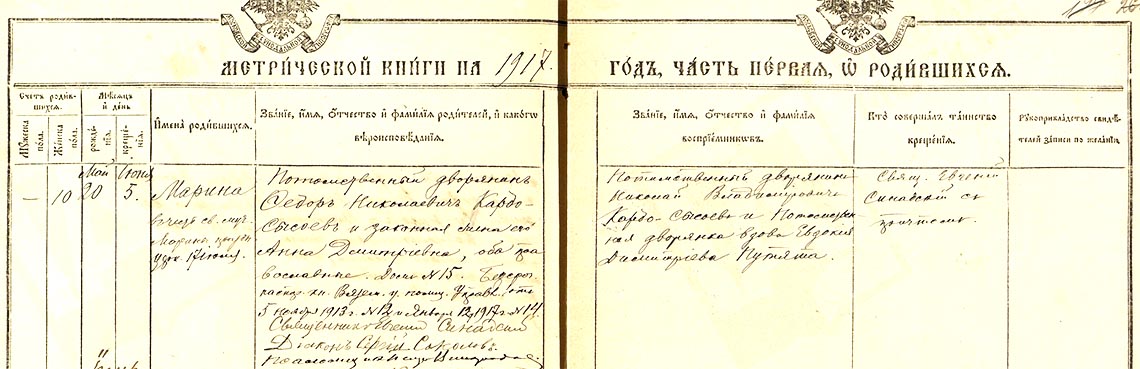 МЕТРИЧЕСКОЙ КНИГИ НА 1917.
ГОДЪ, ЧАСТЬ ПЕРВАЯ, Ѡ РОДИВШИХСЯ.
Счетъ родившихся.
Мужеска пола.
Женска пола.
Мѣсяцъ и день
рожденія.
крещенія.
Имена родившихся.
Званіе, имя, отчество и фамилія родителей, и какогѡ
вѣроисповѣданія.
Званіе, имя, отчество и фамилія
воспріемниковъ.
Кто совершалъ таинство
крещенія.
Рукоприкладство свидѣ-
телей записи по желанію.
—
10
Май
20
Іюня
5.
Марина
въ честь св. муч.
Марины
17 іюля.
Потомственный дворянинъ
Ѳедоръ Николаевичъ Кардо-
Сысоевъ и законная жена его
Анна Димитріевна, оба пра
вославные. Домъ №15.
Вязем. у.
5 ноября 1913 г. №12 и Января 12, 1917 г. №14.
Священникъ Евгеній Синайскій
Діаконъ Сергій Соколовъ.
Псаломщикъ
Потомственный дворянинъ
Николай Владиміровичъ
Кардо-Сысоевъ и Потомствен
ная дворянка вдова Евдокія
Димитріева Путята.
Свящ. Евгеній
Синайскій съ
причтомъ.